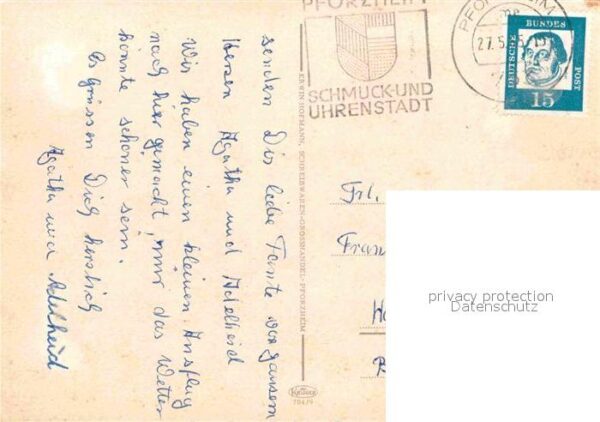 senden Dir liebe Tante von ganzem
Herzen Agatha und Adelheid
Wir haben einen kleinen Ausflug
nach hier gemacht, nur das Wetter
könnte schöner sein.
Es Grüssen Dich herzlich
Agatha und Adelheid
ERWIN HOFMANN, SCHREIBWAREN-GROSSHANDEL-PFORZHEIM
PFORZHEIM
SCHMUCK-UND
UHRENSTADT
PFORZHEIM
27.5.
DEUTSCHE
BUNDES
POST
15
Frl.
Fran
privacy protection
Datenschutz